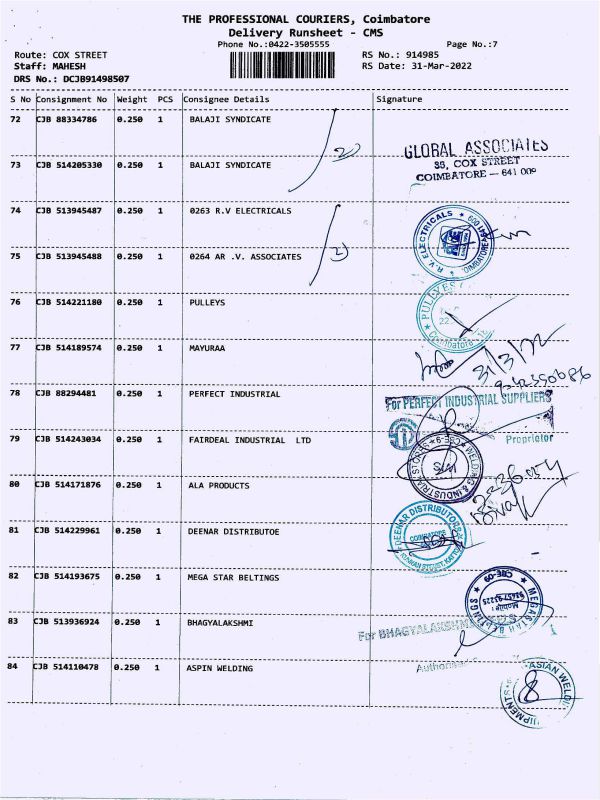 THE PROFESSIONAL COURIERS, Coimbatore
Delivery Runsheet - CMS
Phone No.:0422-3505555 Page No.:7
Route: COX STREET RS No.: 914985
Staff: MAHESH RS Date: 31-Mar-2022
DRS No.: DCJB91498507
S No Consignment No Weight PCS Consignee Details Signature
72 CJB 88334786 0.250 1 BALAJI SYNDICATE
GLOBAL ASSOCIATES
35, COX STREET
COIMBATORE - 641 009
73 CJB 514205330 0.250 1 BALAJI SYNDICATE
2)
74 CJB 513945487 0.250 1 0263 R.V ELECTRICALS
R.V. ELECTRICALS
75 CJB 513945488 0.250 1 0264 AR .V. ASSOCIATES
2)
76 CJB 514221180 0.250 1 PULLEYS
PULLYES
Coimbatore
77 CJB 514189574 0.250 1 MAYURAA
31/3/22
78 CJB 88294481 0.250 1 PERFECT INDUSTRIAL
For PERFECT INDUSTRIAL SUPPLIERS
Proprietor
79 CJB 514243034 0.250 1 FAIRDEAL INDUSTRIAL LTD
WELDING & INDUSTRIAL STORES
CBE-9
80 CJB 514171876 0.250 1 ALA PRODUCTS
81 CJB 514229961 0.250 1 DEENAR DISTRIBUTOE
DEENAR DISTRIBUTORS
COIMBATORE
82 CJB 514193675 0.250 1 MEGA STAR BELTINGS
MEGASTAR BELTINGS
CBE-09
Mobile:
83 CJB 513936924 0.250 1 BHAGYALAKSHMI
For BHAGYALAKSHM
84 CJB 514110478 0.250 1 ASPIN WELDING
ASIAN WELDI